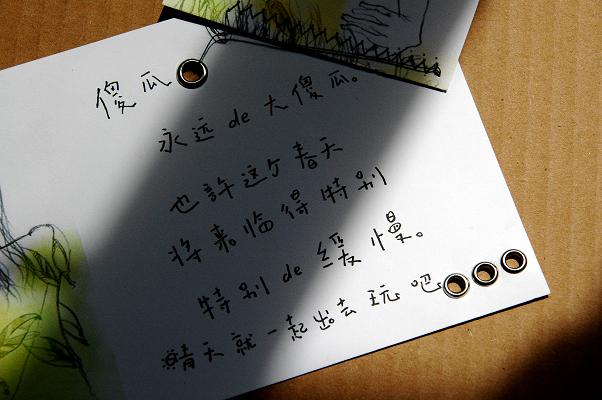 傻瓜
永远de大傻瓜。
也許这个春天
将来临得特别
特别de缓慢。
晴天就一起出去玩吧